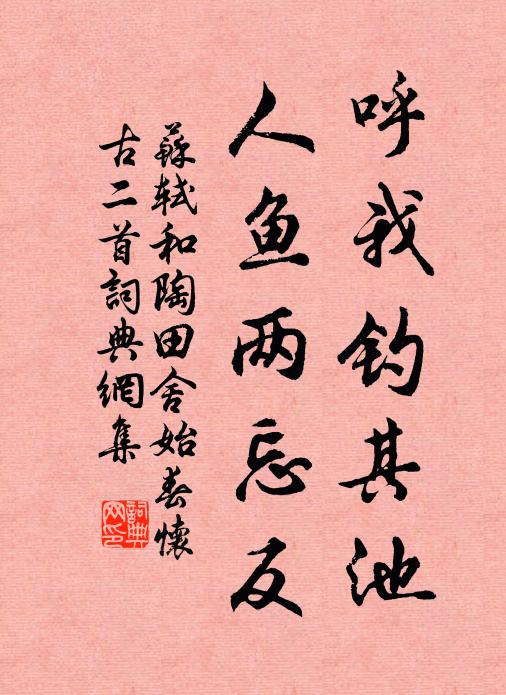 呼我钓其池
人鱼两忘反
蘇軾和陶田舍始春懷
古二首詞典網集
詞典网印